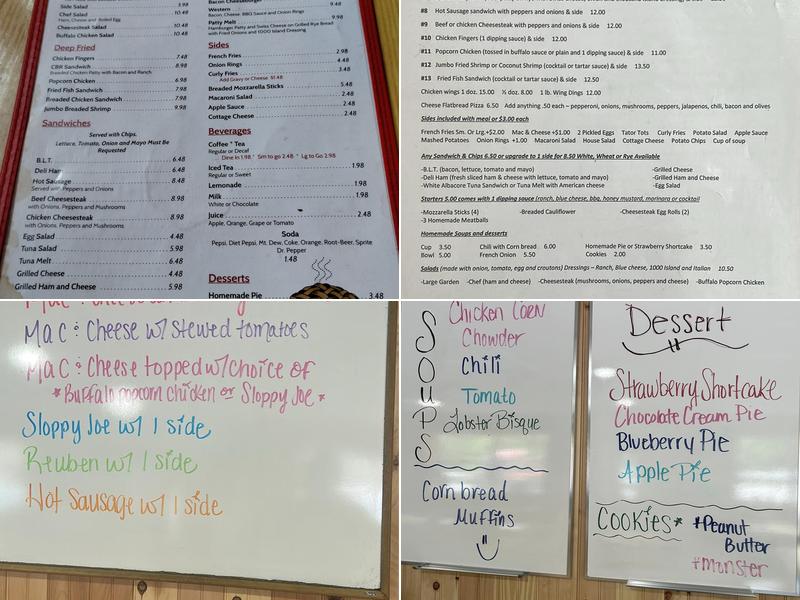 Side Salad 3.98
Chef Salad 10.48
Ham, Cheese and Boiled Egg
Cheesesteak Salad 10.48
Buffalo Chicken Salad 10.48
Deep Fried
Chicken Fingers 7.48
CBR Sandwich 8.98
Breaded Chicken Patty with Bacon and Ranch
Popcorn Chicken 6.98
Fried Fish Sandwich 7.98
Breaded Chicken Sandwich 7.98
Jumbo Breaded Shrimp 9.98
Sandwiches
Served with Chips.
Lettuce, Tomato, Onion and Mayo Must Be
Requested
B.L.T. 6.48
Deli Ham 6.48
Hot Sausage 8.48
Served with Peppers and Onions
Beef Cheesesteak 8.98
with Onions, Peppers and Mushrooms
Chicken Cheesesteak 8.98
with Onions, Peppers and Mushrooms
Egg Salad 4.48
Tuna Salad 5.98
Tuna Melt 6.48
Grilled Cheese 4.48
Grilled Ham and Cheese 5.98
Bacon Cheeseburger
Western 9.98
Bacon, Cheese, BBQ Sauce and Onion Rings
Patty Melt 9.98
Hamburger Patty and Swiss Cheese on Grilled Rye Bread
with Fried Onions and 1000 Island Dressing
Sides
French Fries 2.98
Onion Rings 4.48
Curly Fries 3.48
Add Gravy or Cheese $1.48
Breaded Mozzarella Sticks 5.48
Macaroni Salad 2.48
Apple Sauce 2.48
Cottage Cheese 2.48
Beverages
Coffee * Tea
Regular or Decaf
Dine In 1.98 * Sm to go 2.48 * Lg to Go 2.98
Iced Tea 1.98
Regular or Sweet
Lemonade 1.98
Milk 1.98
White or Chocolate
Juice 2.48
Apple, Orange, Grape or Tomato
Soda
Pepsi, Diet Pepsi, Mt. Dew, Coke, Orange, Root-Beer, Sprite
Dr. Pepper
1.48
Desserts
Homemade Pie 3.48
#8 Hot Sausage sandwich with peppers and onions & side 12.00
#9 Beef or chicken Cheesesteak with peppers and onions & side 12.00
#10 Chicken Fingers (1 dipping sauce) & side 12.00
#11 Popcorn Chicken (tossed in buffalo sauce or plain and 1 dipping sauce) & side 11.00
#12 Jumbo Fried Shrimp or Coconut Shrimp (cocktail or tartar sauce) & side 13.50
#13 Fried Fish Sandwich (cocktail or tartar sauce) & side 12.50
Chicken wings 1 doz. 15.00 ½ doz. 8.00 1 lb. Wing Dings 12.00
Cheese Flatbread Pizza 6.50 Add anything .50 each – pepperoni, onions, mushrooms, peppers, jalapenos, chili, bacon and olives
Sides included with meal or $3.00 each
French Fries Sm. Or Lrg.+$2.00 Mac & Cheese +$1.00 2 Pickled Eggs Tator Tots Curly Fries Potato Salad Apple Sauce
Mashed Potatoes Onion Rings +1.00 Macaroni Salad House Salad Cottage Cheese Potato Chips Cup of soup
Any Sandwich & Chips 6.50 or upgrade to 1 side for 8.50 White, Wheat or Rye Available
-B.L.T. (bacon, lettuce, tomato and mayo) -Grilled Cheese
-Deli Ham (fresh sliced ham & cheese with lettuce, tomato and mayo) -Grilled Ham and Cheese
-White Albacore Tuna Sandwich or Tuna Melt with American cheese -Egg Salad
Starters 5.00 comes with 1 dipping sauce (ranch, blue cheese, bbq, honey mustard, marinara or cocktail
-Mozzarella Sticks (4) -Breaded Cauliflower -Cheesesteak Egg Rolls (2)
-3 Homemade Meatballs
Homemade Soups and desserts
Cup 3.50 Chili with Corn bread 6.00 Homemade Pie or Strawberry Shortcake 3.50
Bowl 5.00 French Onion 5.50 Cookies 2.00
Salads (made with onion, tomato, egg and croutons) Dressings – Ranch, Blue cheese, 1000 Island and Italian 10.50
-Large Garden -Chef (ham and cheese) -Cheesesteak (mushrooms, onions, peppers and cheese) -Buffalo Popcorn Chicken
Mac & Cheese w/ stewed tomatoes
Mac & Cheese topped w/ choice of
*Buffalo popcorn chicken or Sloppy Joe*
Sloppy Joe w/ 1 side
Reuben w/ 1 side
Hot Sausage w/ 1 side
SOUPS
Chicken Corn
Chowder
Chili
Tomato
Lobster Bisque
Corn bread
Muffins
Dessert
Strawberry Shortcake
Chocolate Cream Pie
Blueberry Pie
Apple Pie
Cookies* *Peanut
Butter
*Monster